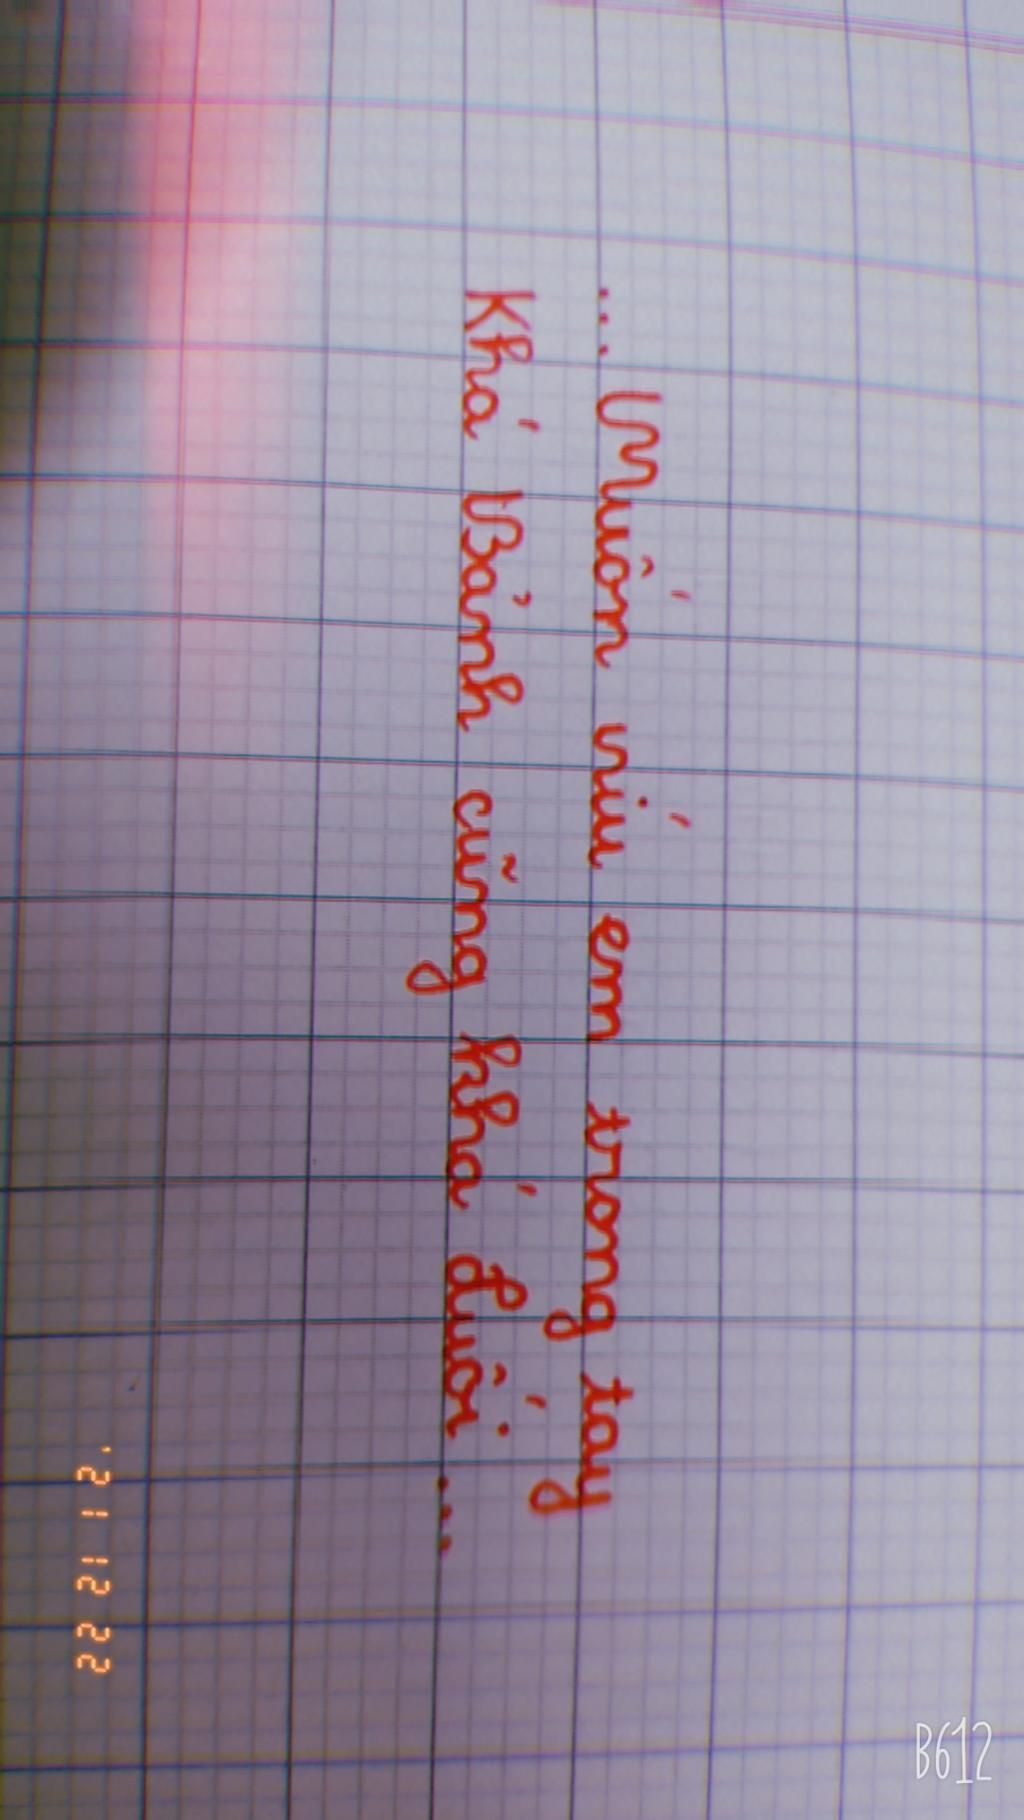 ... Muốn níu em trong tay
Khá Bảnh cũng khá đuối ...
'21 12 22
B612